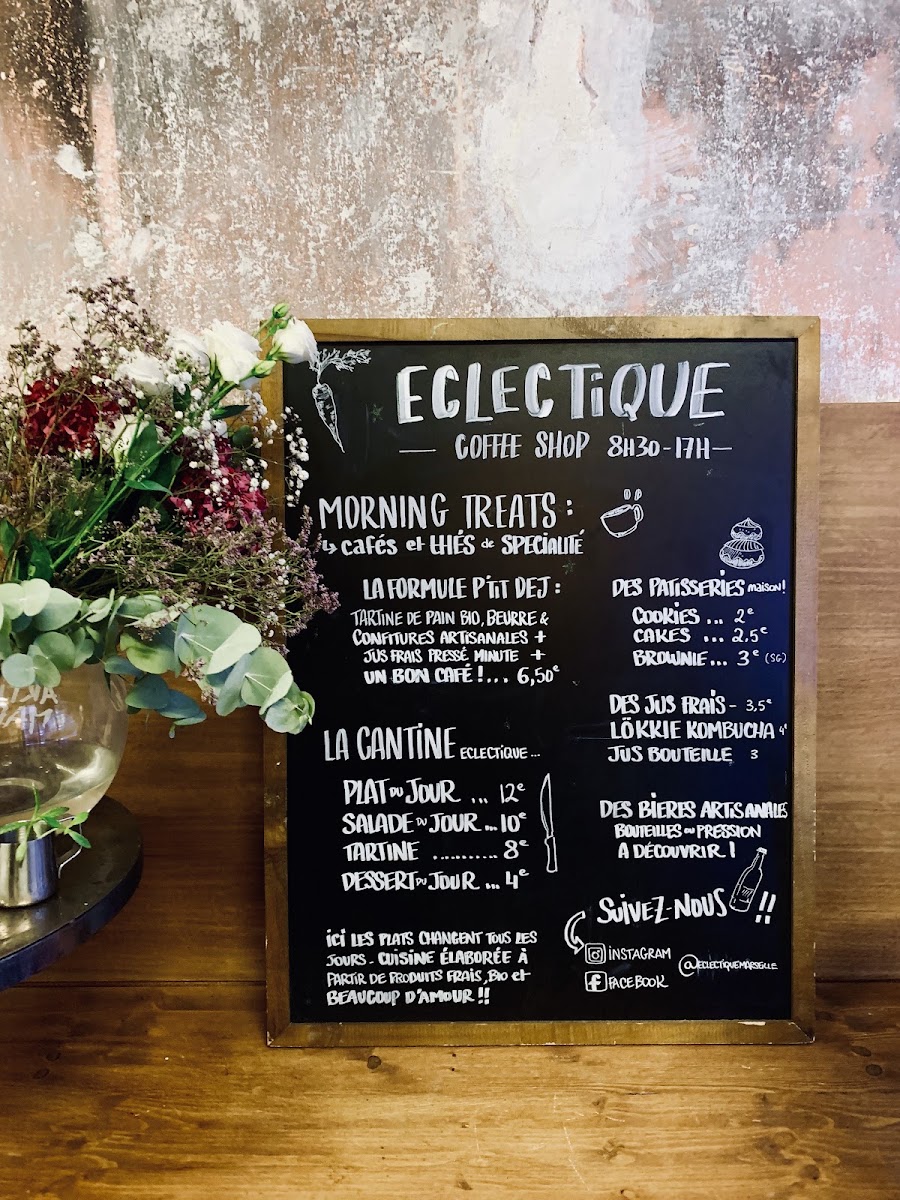 ECLECTIQUE
COFFEE SHOP 8H30-17H
MORNING TREATS:
cafés et THÉS de SPECIALITÉ
LA FORMULE P'TIT DEJ:
TARTINE DE PAIN BIO, BEURRE &
CONFITURES ARTISANALES +
JUS FRAIS PRESSÉ MINUTE +
UN BON CAFÉ!... 6,50€
LA CANTINE ECLECTIQUE...
PLAT DU JOUR ... 12€
SALADE DU JOUR ... 10€
TARTINE .......... 8€
DESSERT DU JOUR ... 4€
ICI LES PLATS CHANGENT TOUS LES
JOURS - CUISINE ÉLABORÉE À
PARTIR DE PRODUITS FRAIS, BIO et
BEAUCOUP D'AMOUR !!
DES PATISSERIES maison!
COOKIES ... 2€
CAKES ... 2,5€
BROWNIE... 3€ (SG)
DES JUS FRAIS - 3,5€
LÖKKIE KOMBUCHA 4€
JUS BOUTEILLE 3
DES BIERES ARTISANALES
BOUTEILLES OU PRESSION
A DÉCOUVRIR!
SUIVEZ-NOUS !!
INSTAGRAM
FACEBOOK
@ECLECTIQUEMARSEILLE